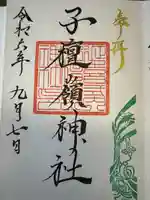 奉拝
子檀嶺神社
令和六年九月七日